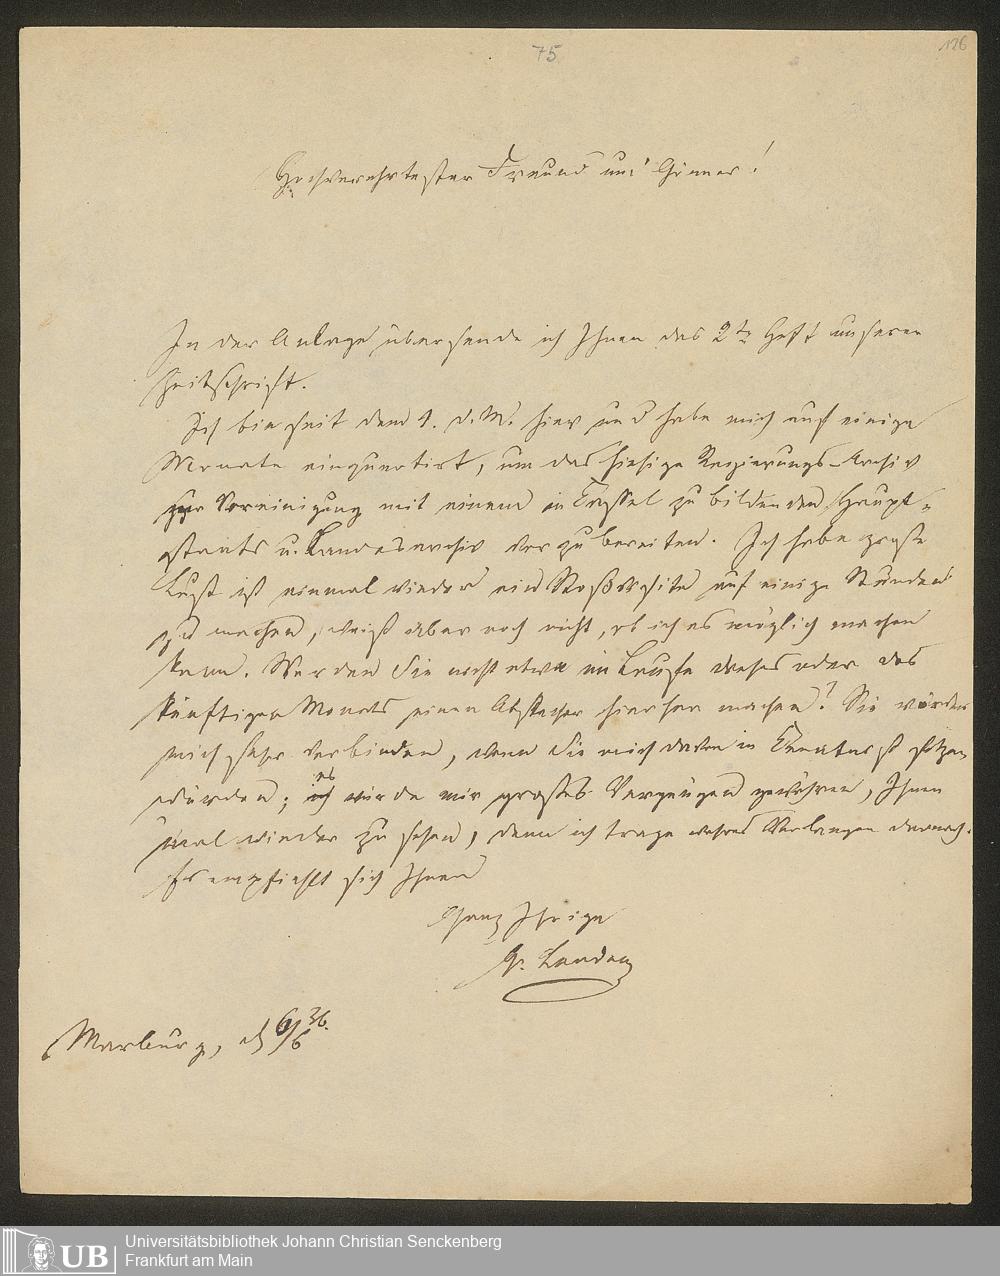 75
126
Hochverehrtester Freund und Gönner!
In der Anlage übersende ich Ihnen das 2te Heft unserer
Zeitschrift.
Ich bin seit dem 1. d. M. hier und habe mich auf einige
Monate einquartirt, um das hiesige Regierungs-Archiv
zur Vereinigung mit einem in Cassel zu bildenden Haupt-
staats u. Landesarchiv vorzubereiten. Ich habe große
Lust ist einmal wieder eine auf einige Stunden
zu machen, weiß aber noch nicht, ob ich es möglich machen
kann. Werden Sie nicht etwa im Laufe dieses oder des
künftigen Monats einen Abstecher hierher machen? Sie würden
mich sehr verbinden, wenn Sie mich davon in Kenntniß setzen
würden; es würde mir großes Vergnügen gewähren, Ihnen
mal wieder zu sehen, denn ich trage wahres Verlangen darnach.
Es empfiehlt sich Ihnen
Ganz Ihrige
G. Landau
Marburg, d 6/6 36.
UB
Universitätsbibliothek Johann Christian Senckenberg
Frankfurt am Main